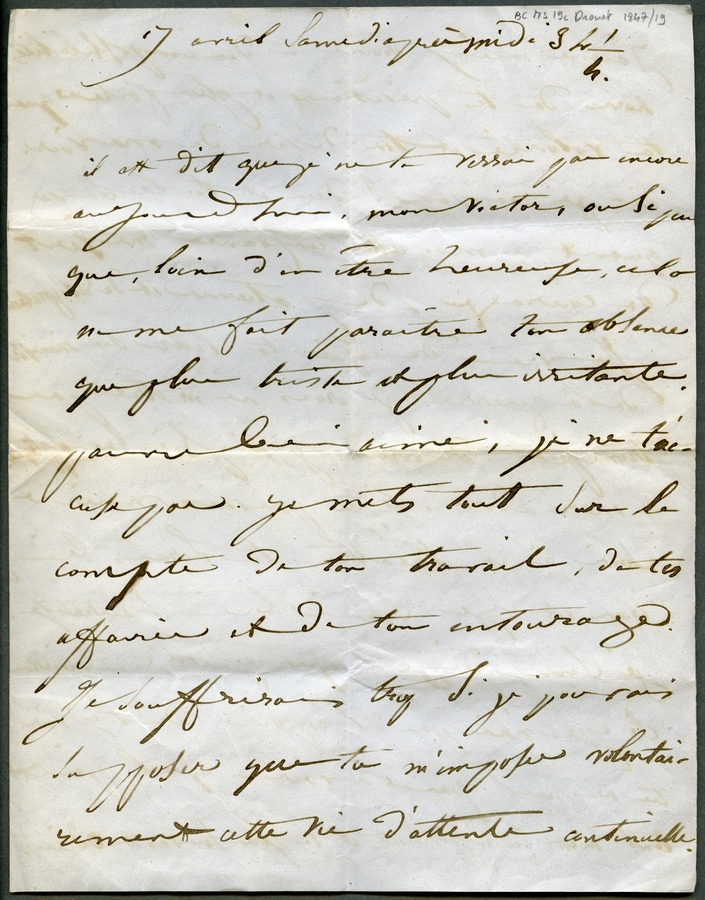 BC MS 19c Drouet 1847/19
17 avril Samedi après midi 3 h ¼
il est dit que je ne te verrai pas encore
aujourd'hui, mon Victor,
que, loin d'en être heureuse, cela
ne me fait paraître ton absence
que plus triste et plus irritante.
pauvre bien aimé, je ne t'ac-
cuse pas. je mets tout sur le
compte de ton travail, de tes
affaires et de ton entourage.
Je souffrirais trop si je pouvais
supposer que tu m'imposes volontai-
rement cette vie d'attente continuelle.